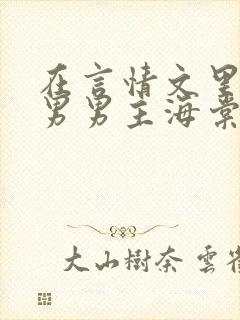 在言情文里
男男主海棠
大山樹奈 雲雀